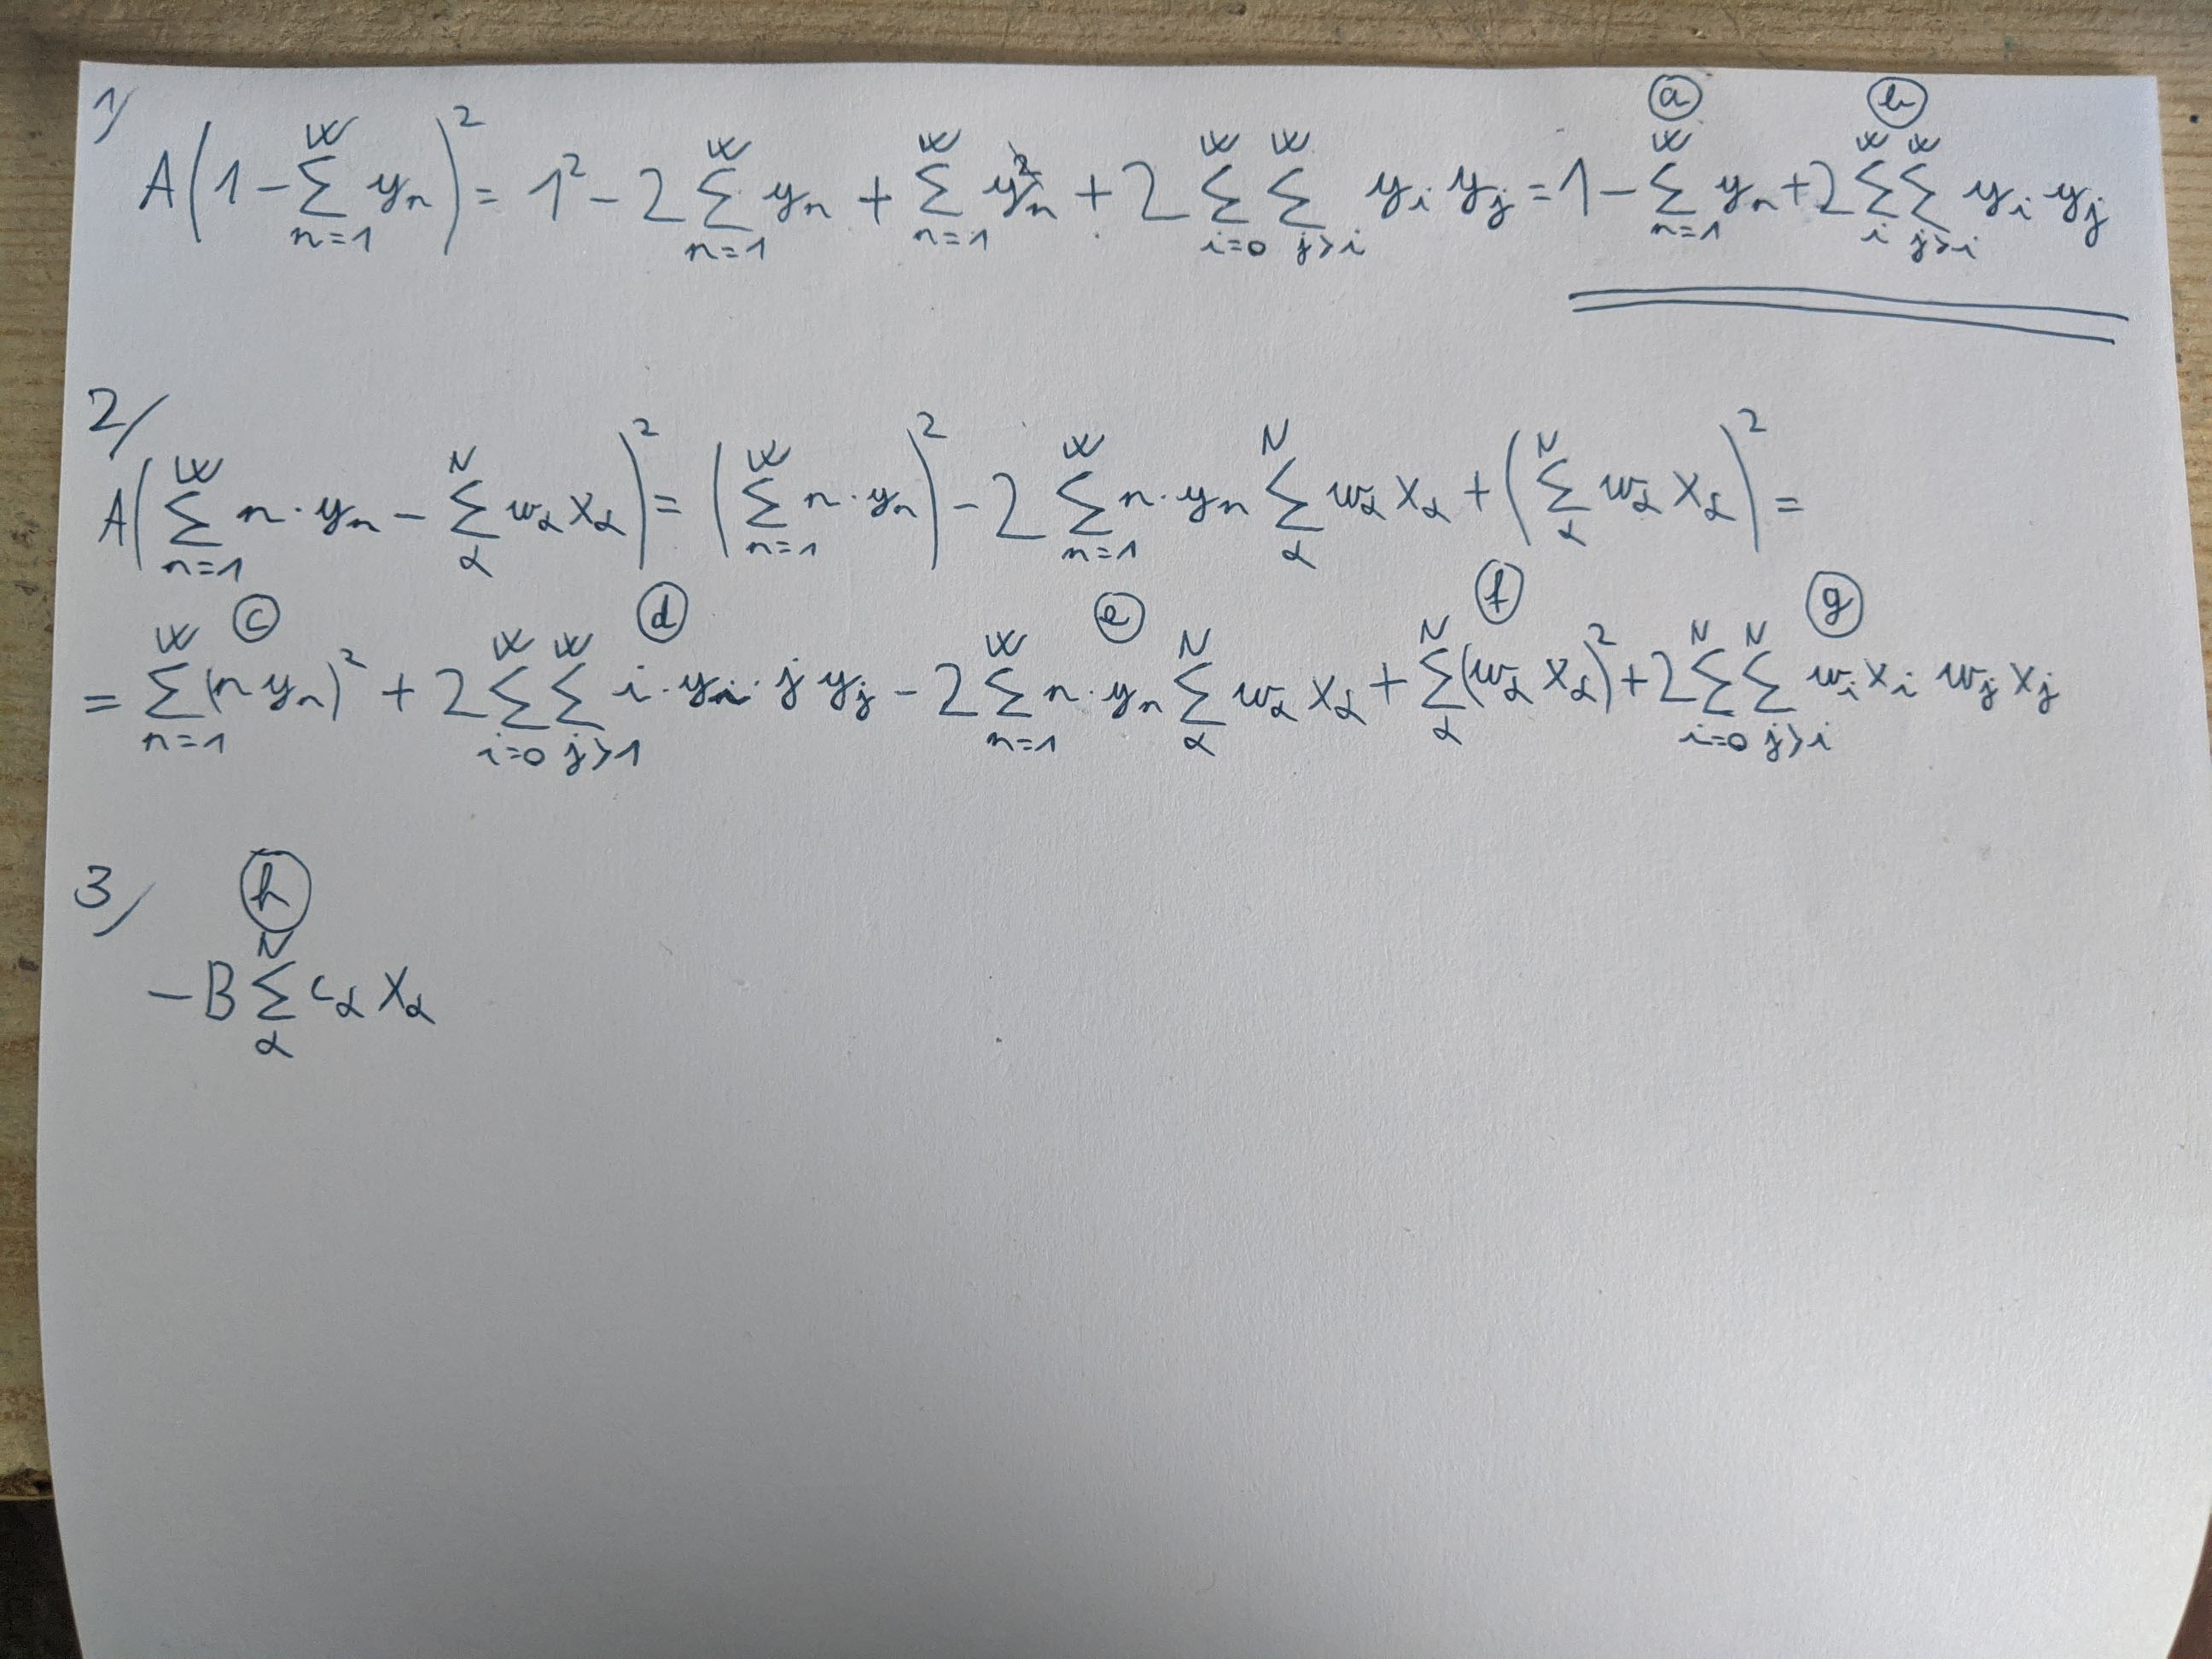 1/
ⓐ ⓑ
A(1 - ∑_{n=1}^{W} y_n)² = 1² - 2 ∑_{n=1}^{W} y_n + ∑_{n=1}^{W} y_n² + 2 ∑_{i=0}^{W} ∑_{j>i}^{W} y_i y_j = 1 - ∑_{n=1}^{W} y_n + 2 ∑_{i}^{W} ∑_{j>i}^{W} y_i y_j
2/
A(∑_{n=1}^{W} n · y_n - ∑_{α}^{N} w_α x_α)² = (∑_{n=1}^{W} n · y_n)² - 2 ∑_{n=1}^{W} n · y_n ∑_{α}^{N} w_α x_α + (∑_{α}^{N} w_α x_α)² =
ⓒ ⓓ ⓔ ⓕ ⓖ
= ∑_{n=1}^{W} (n y_n)² + 2 ∑_{i=0}^{W} ∑_{j>1}^{W} i · y_i · j y_j - 2 ∑_{n=1}^{W} n · y_n ∑_{α}^{N} w_α x_α + ∑_{α}^{N} (w_α x_α)² + 2 ∑_{i=0}^{N} ∑_{j>i}^{N} w_i x_i w_j x_j
3/ ⓗ
- B ∑_{α}^{N} c_α x_α